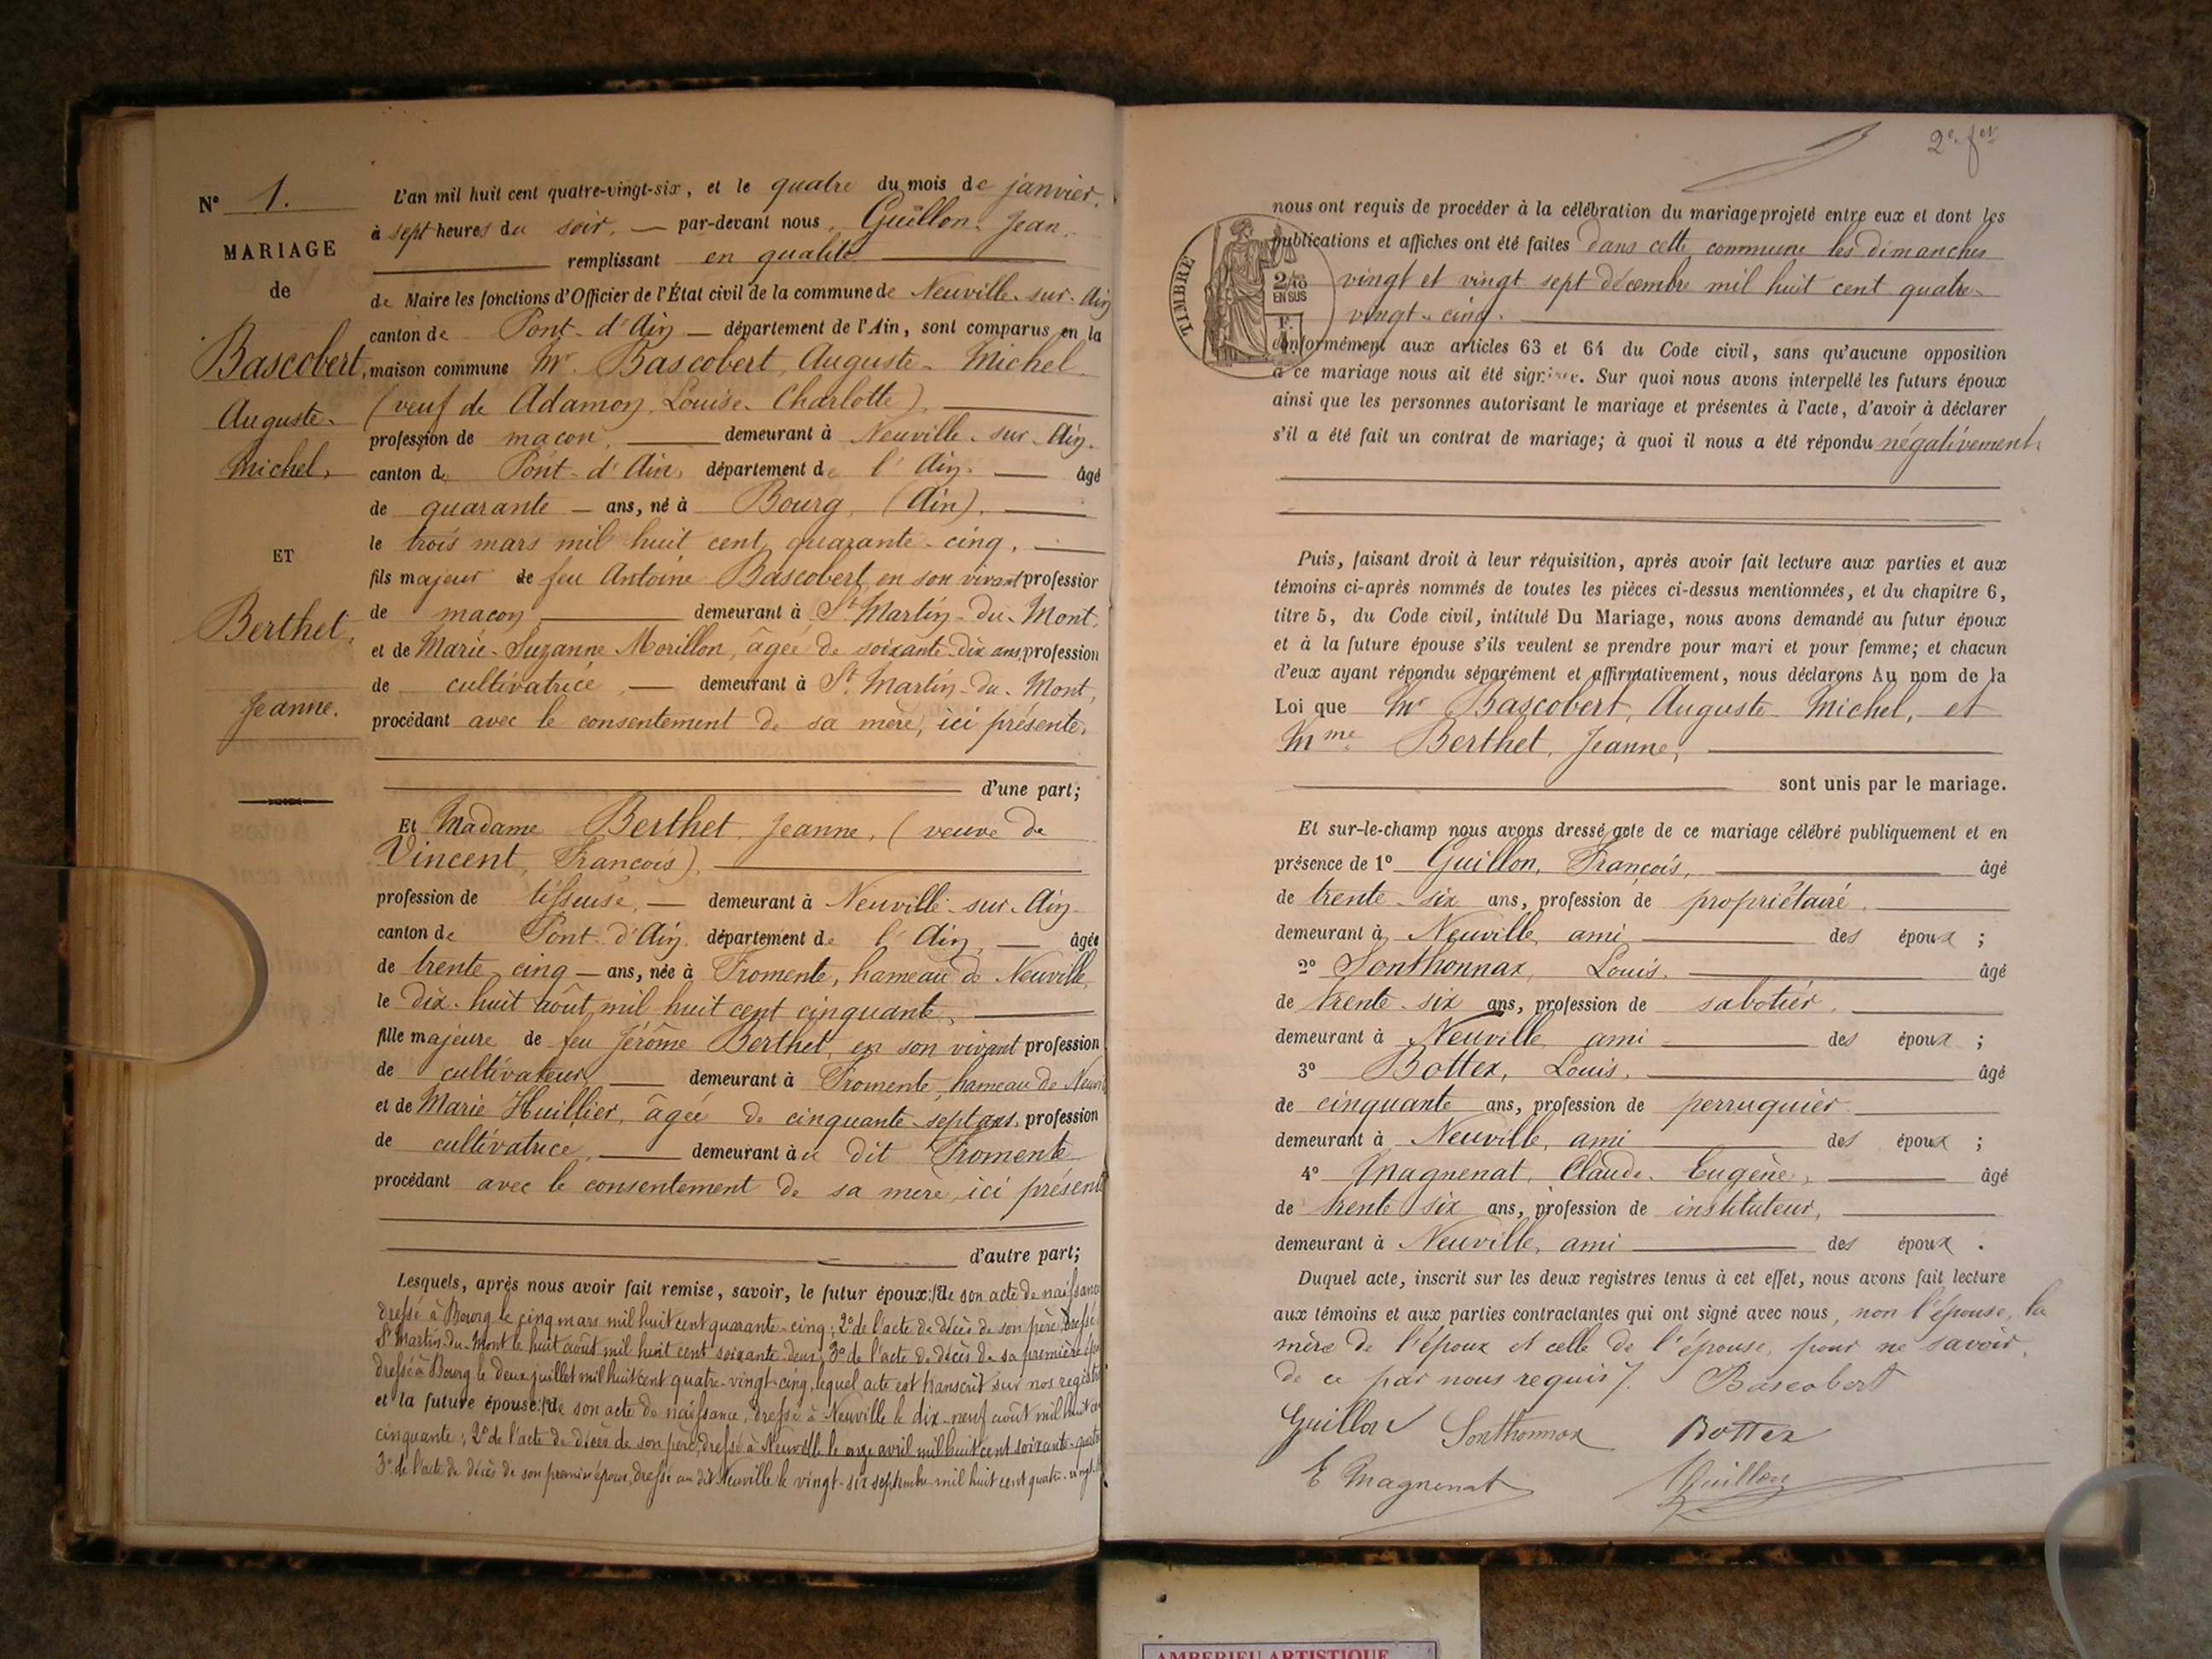 N° 1.
MARIAGE
de
Bascobert,
Auguste-
Michel,
ET
Berthet,
Jeanne.
L'an mil huit cent quatre-vingt-six, et le quatre du mois de janvier,
à sept heures du soir, par-devant nous, Guillon, Jean,
remplissant en qualité
de Maire les fonctions d'Officier de l'État civil de la commune de Neuville-sur-Ain
canton de Pont-d'Ain département de l'Ain, sont comparus en la
maison commune Mr Bascobert, Auguste-Michel
(veuf de Adamon, Louise-Charlotte),
profession de maçon, demeurant à Neuville-sur-Ain
canton de Pont-d'Ain, département de l'Ain, âgé
de quarante ans, né à Bourg, (Ain),
le trois mars mil huit cent quarante-cinq,
fils majeur de feu Antoine Bascobert, en son vivant profession
de maçon demeurant à St Martin-du-Mont,
et de Marie-Suzanne Morillon, âgée de soixante-dix ans, profession
de cultivatrice, demeurant à St Martin-du-Mont,
procédant avec le consentement de sa mère, ici présente,
d'une part;
Et Madame Berthet, Jeanne, (veuve de
Vincent, François),
profession de tisseuse, demeurant à Neuville-sur-Ain
canton de Pont-d'Ain, département de l'Ain, âgée
de trente-cinq ans, née à Fromente, hameau de Neuville,
le dix-huit août mil huit cent cinquante,
fille majeure de feu Jérôme Berthet, en son vivant profession
de cultivateur, demeurant à Fromente, hameau de
et de Marie Huillier, âgée de cinquante-sept ans, profession
de cultivatrice, demeurant au dit Fromente
procédant avec le consentement de sa mère, ici présente
d'autre part;
Lesquels, après nous avoir fait remise, savoir, le futur époux: 1° de son acte de naissance
dressé à Bourg le cinq mars mil huit cent quarante-cinq; 2° de l'acte de décès de son père dressé
St Martin-du-Mont le huit août mil huit cent soixante-deux; 3° de l'acte de décès de sa première
dressé à Bourg le deux juillet mil huit cent quatre-vingt-cinq, lequel acte est transcrit sur nos
et la future épouse: 1° de son acte de naissance, dressé à Neuville le dix-neuf août mil huit
cinquante; 2° de l'acte de décès de son père, dressé à Neuville le onze avril mil huit cent soixante-quatre
3° de l'acte de décès de son premier époux, dressé au dit Neuville le vingt-six septembre mil huit cent quatre-vingt
2e fet
TIMBRE
2/10
EN SUS
nous ont requis de procéder à la célébration du mariage projeté entre eux et dont les
publications et affiches ont été faites dans cette commune les dimanches
vingt et vingt sept décembre mil huit cent quatre-
vingt-cinq.
conformément aux articles 63 et 64 du Code civil, sans qu'aucune opposition
à ce mariage nous ait été signifiée. Sur quoi nous avons interpellé les futurs époux
ainsi que les personnes autorisant le mariage et présentes à l'acte, d'avoir à déclarer
s'il a été fait un contrat de mariage; à quoi il nous a été répondu négativement.
Puis, faisant droit à leur réquisition, après avoir fait lecture aux parties et aux
témoins ci-après nommés de toutes les pièces ci-dessus mentionnées, et du chapitre 6,
titre 5, du Code civil, intitulé Du Mariage, nous avons demandé au futur époux
et à la future épouse s'ils veulent se prendre pour mari et pour femme; et chacun
d'eux ayant répondu séparément et affirmativement, nous déclarons Au nom de la
Loi que Mr Bascobert, Auguste-Michel, et
Mme Berthet, Jeanne,
sont unis par le mariage.
Et sur-le-champ nous avons dressé acte de ce mariage célébré publiquement et en
présence de 1° Guillon, François, âgé
de trente-six ans, profession de propriétaire,
demeurant à Neuville, ami des époux ;
2° Sonthonnax, Louis, âgé
de trente-six ans, profession de sabotier,
demeurant à Neuville, ami des époux ;
3° Bottex, Louis, âgé
de cinquante ans, profession de perruquier
demeurant à Neuville, ami des époux ;
4° Magnenat, Claude-Eugène, âgé
de trente-six ans, profession de instituteur,
demeurant à Neuville, ami des époux .
Duquel acte, inscrit sur les deux registres tenus à cet effet, nous avons fait lecture
aux témoins et aux parties contractantes qui ont signé avec nous, non l'épouse, la
mère de l'époux et celle de l'épouse, pour ne savoir,
de ce par nous requis. Bascobert
Guillon Sonthonnax Bottex
E Magnenat Guillon
AMBERIEU ARTISTIQUE